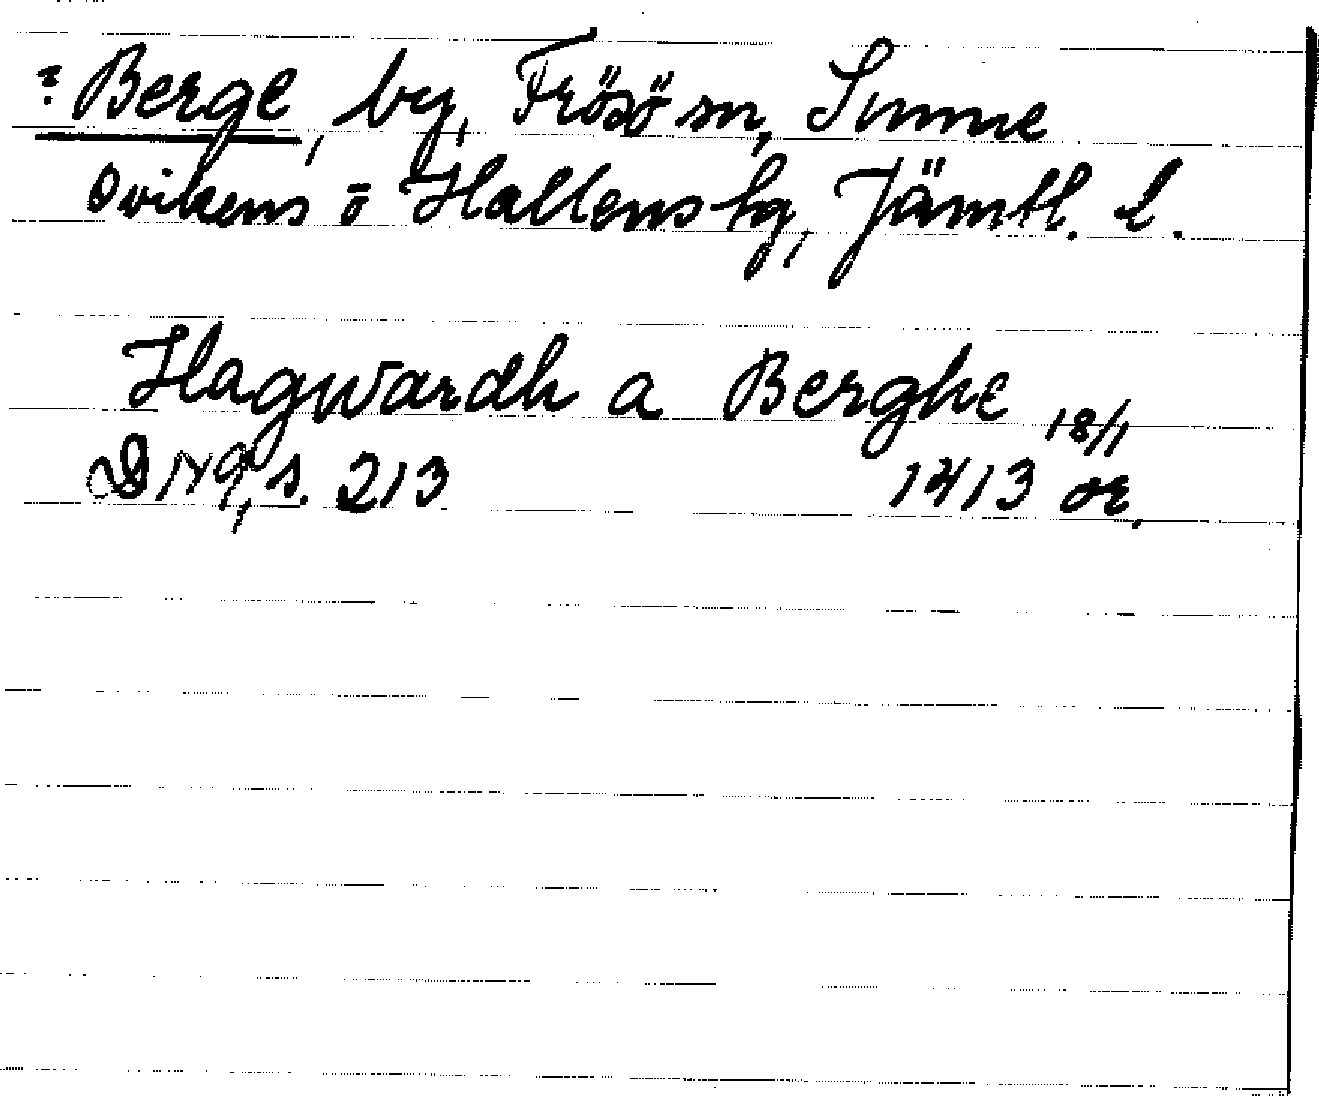 ? Berge, by, Frösö sn, Sunne
Ovikens o Hallens tg, Jämtl. l.
Hagwardh a Berghe 18/1
DN 9, s. 213 1413 or.